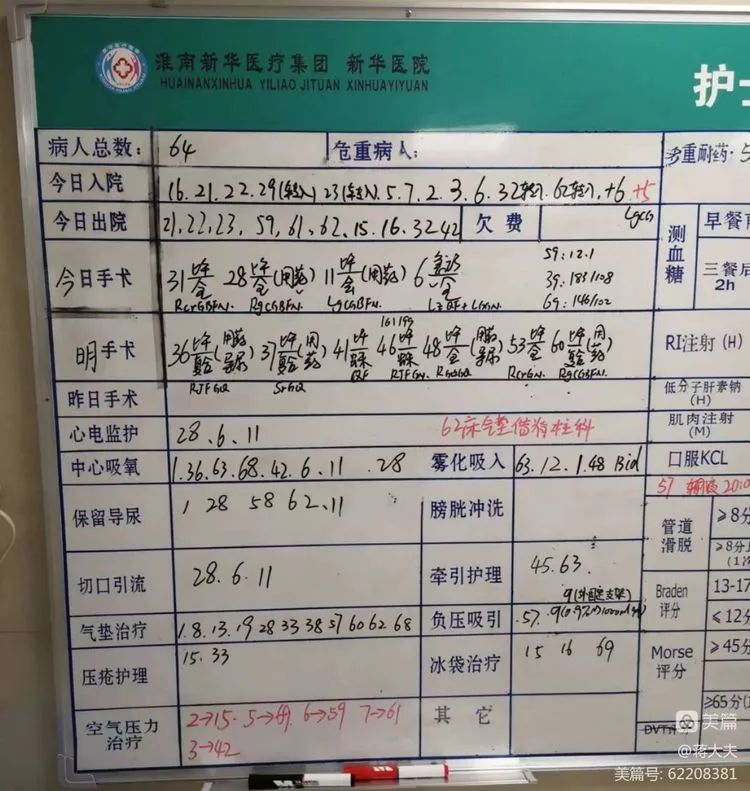 淮南新华医疗集团 新华医院
HUAINANXINHUA YILIAO JITUAN XINHUAYIYUAN
护士
病人总数: 64 危重病人: 多重耐药·5
今日入院 16.21.22.29(转入) 23(转入) 5.7.2.3.6.32转入 62转入 +6 +5
今日出院 21,22,23, 59,61,62,15.16.3242 欠费 LgCG
测血糖 早餐前
三餐后2h
今日手术 31 28 (用药) 11 (用药) 6
59:12.1
39:183/108
69:146/102
RcrGBFN. RgCGBFN. LgCGBFN.
明手术 161/99 RI注射(H)
36 37 (用药) 41 46 48 53 60 (用药)
RJFGQ SrGQ QF RJFGN. RcrGN. RgCGBFN.
昨日手术 低分子肝素钠(H)
心电监护 28.6.11 62床气垫借脊柱科 肌肉注射(M)
中心吸氧 1.36.63.68.42.6.11 .28 雾化吸入 63.12.1.48 Bid 口服KCL
57 20:0
保留导尿 1 28 58 62.11 膀胱冲洗 管道滑脱 ≥8分
≥8分
(1次
切口引流 28.6.11 牵引护理 45.63. Braden评分 13-17
9(外固定支架)
气垫治疗 1.8.13.19 28 33 38 57 60 62 68 负压吸引 .57.9 ≤12分
压疮护理 15.33 冰袋治疗 15 16 69 Morse评分 ≥45分
≥65分(1
空气压力治疗 2→15. 5→69. 6→59 7→61 其它 DVT评分
3→42
美篇
@蒋大夫
美篇号: 62208381